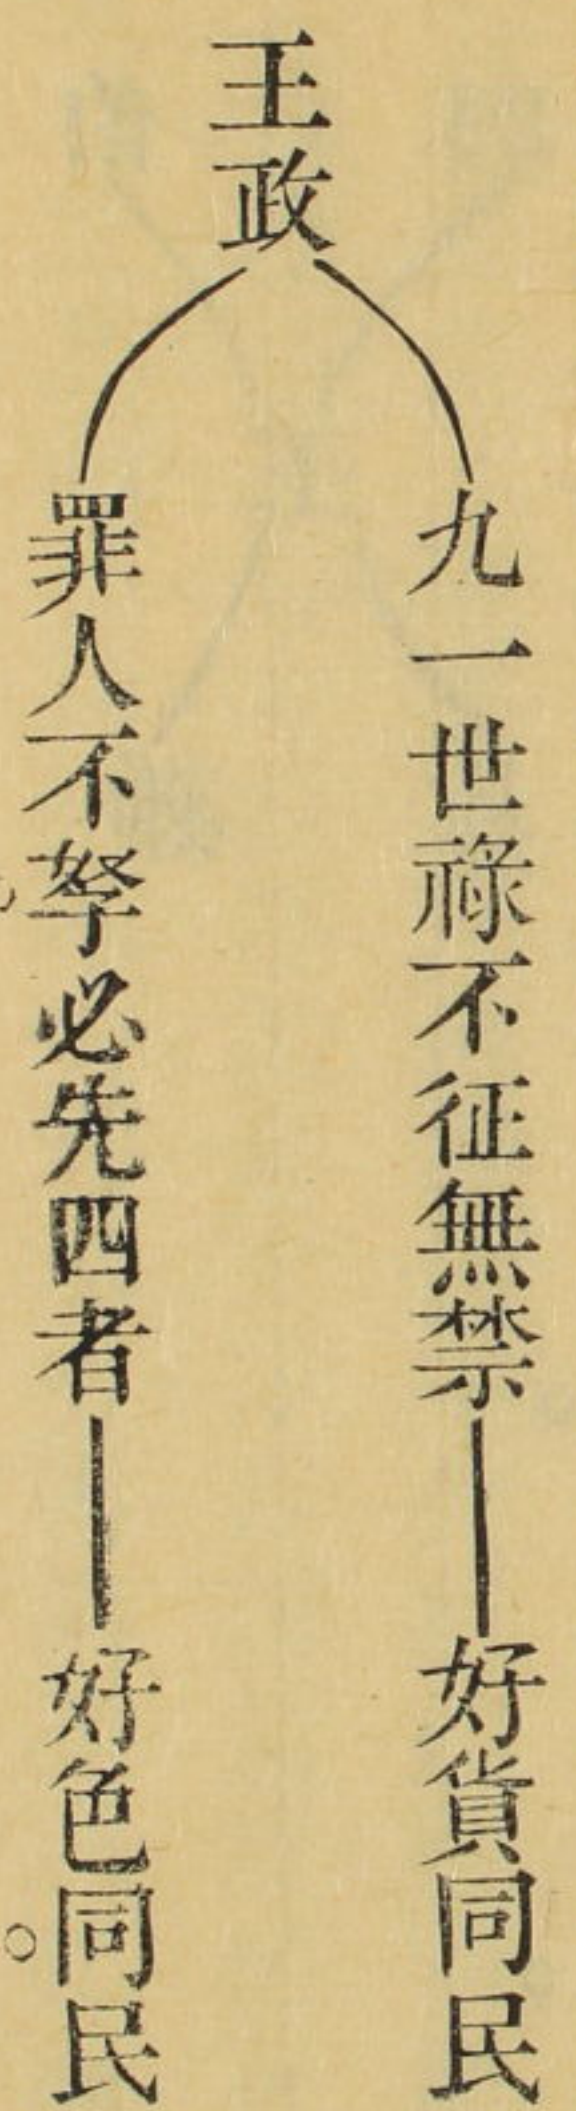 王政
九一世祿不征無禁
好貨同民
罪人不孥必先四者
好色同民